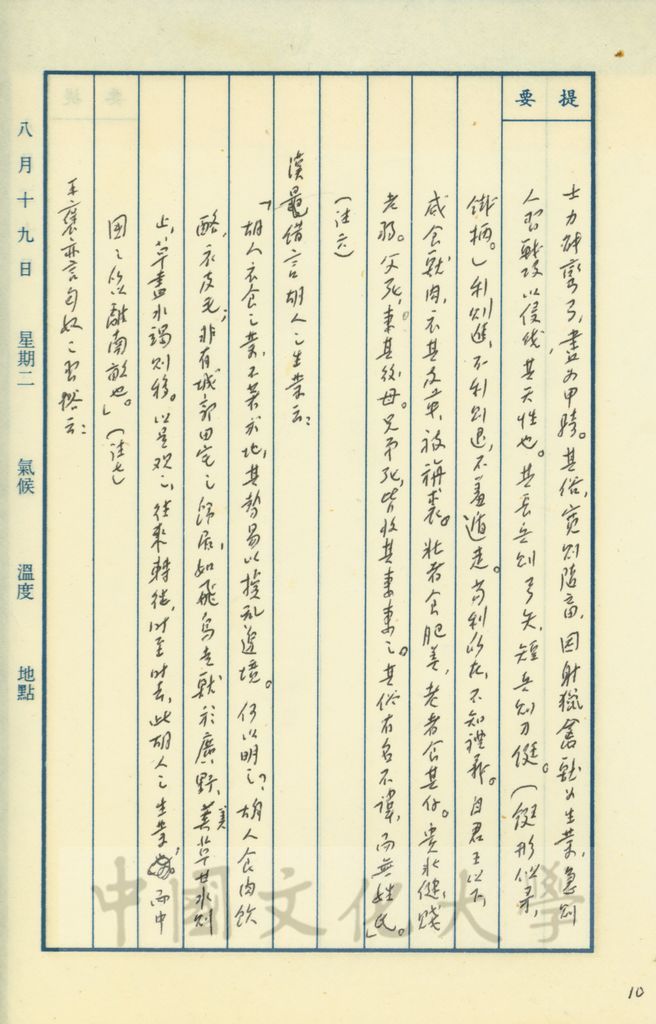 提要
士力能彎弓,盡為甲騎。其俗,寬則隨畜,因射獵禽獸為生業,急則
人習戰攻以侵伐,其天性也。其長兵則弓矢,短兵則刀鋋。(鋋形似矛,
鐵柄。)利則進,不利則退,不羞遁走。苟利所在,不知禮義。自君王以下
咸食獸肉,衣其皮革,被旃裘。壯者食肥美,老者食其餘。貴壯健,賤
老弱。父死,妻其後母。兄弟死,皆收其妻妻之。其俗有名不諱,而無姓氏」。
(註六)
漢鼂錯言胡人之生業云:
「胡人衣食之業,不著於地,其勢易以擾亂邊境。何以明之?胡人食肉飲
酪,衣皮毛;非有城郭田宅之歸居,如飛鳥走獸於廣野,美草甘水則
止,草盡水竭則移。以是观之,往來轉徙,时至时去,此胡人之生業,而中
國之所以離南畝也。」(註七)
王褒亦言匈奴之習俗云:
八月十九日 星期二 氣候 溫度 地點
中國文化大學
10